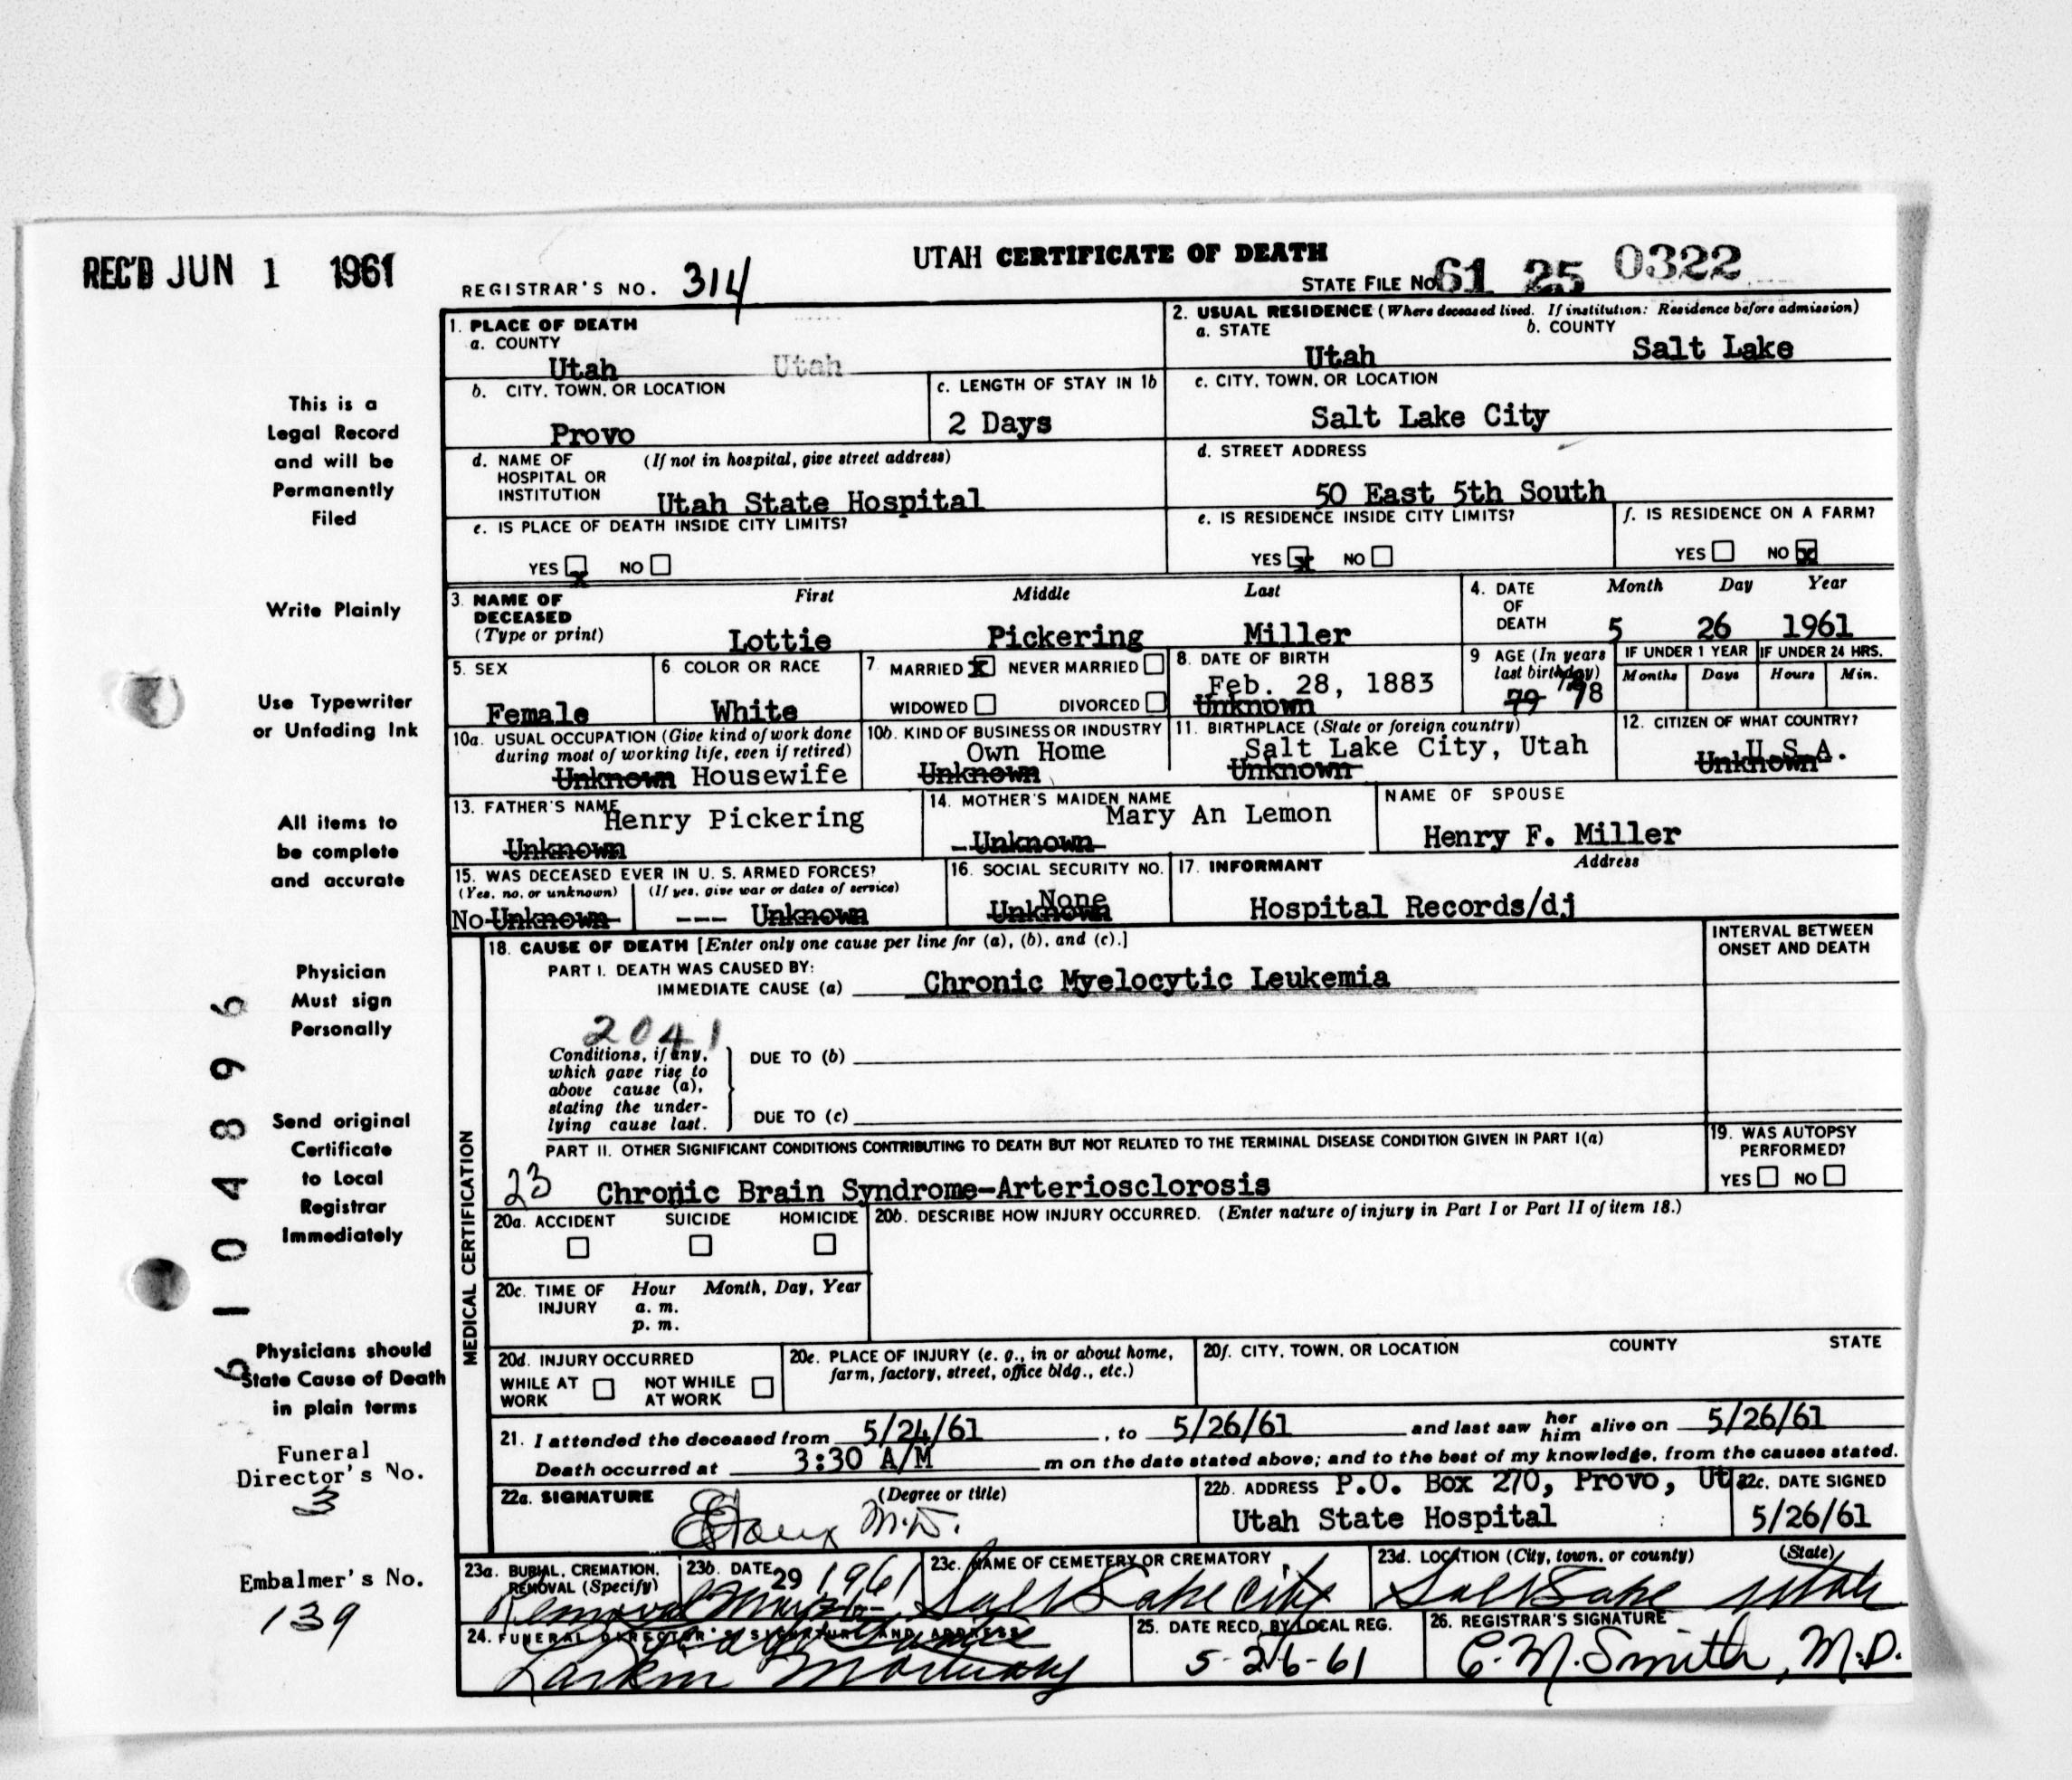 REC'D JUN 1 1961
UTAH CERTIFICATE OF DEATH
REGISTRAR'S NO. 314
STATE FILE NO. 61 25 0322
1. PLACE OF DEATH
a. COUNTY
Utah Utah
2. USUAL RESIDENCE (Where deceased lived. If institution: Residence before admission)
a. STATE b. COUNTY
Utah Salt Lake
b. CITY, TOWN, OR LOCATION
Provo
c. LENGTH OF STAY IN 1b
2 Days
c. CITY, TOWN, OR LOCATION
Salt Lake City
d. NAME OF (If not in hospital, give street address)
HOSPITAL OR
INSTITUTION Utah State Hospital
d. STREET ADDRESS
50 East 5th South
e. IS PLACE OF DEATH INSIDE CITY LIMITS?
YES x NO
e. IS RESIDENCE INSIDE CITY LIMITS?
YES x NO
f. IS RESIDENCE ON A FARM?
YES NO x
3. NAME OF First Middle Last
DECEASED
(Type or print) Lottie Pickering Miller
4. DATE Month Day Year
OF
DEATH 5 26 1961
5. SEX
Female
6. COLOR OR RACE
White
7. MARRIED x NEVER MARRIED
WIDOWED DIVORCED
8. DATE OF BIRTH
Feb. 28, 1883
Unknown
9 AGE (In years
last birthday)
79 78
IF UNDER 1 YEAR IF UNDER 24 HRS.
Months Days Hours Min.
10a. USUAL OCCUPATION (Give kind of work done
during most of working life, even if retired)
Unknown Housewife
10b. KIND OF BUSINESS OR INDUSTRY
Own Home
Unknown
11. BIRTHPLACE (State or foreign country)
Salt Lake City, Utah
Unknown
12. CITIZEN OF WHAT COUNTRY?
U.S.A.
Unknown
13. FATHER'S NAME
Henry Pickering
Unknown
14. MOTHER'S MAIDEN NAME
Mary An Lemon
Unknown
NAME OF SPOUSE
Henry F. Miller
15. WAS DECEASED EVER IN U. S. ARMED FORCES?
(Yes, no, or unknown) (If yes, give war or dates of service)
No Unknown --- Unknown
16. SOCIAL SECURITY NO.
None
Unknown
17. INFORMANT Address
Hospital Records/dj
MEDICAL CERTIFICATION
18. CAUSE OF DEATH [Enter only one cause per line for (a), (b), and (c).]
INTERVAL BETWEEN
ONSET AND DEATH
PART I. DEATH WAS CAUSED BY:
IMMEDIATE CAUSE (a) Chronic Myelocytic Leukemia
2041
Conditions, if any,
which gave rise to
above cause (a),
stating the under-
lying cause last.
DUE TO (b)
DUE TO (c)
PART II. OTHER SIGNIFICANT CONDITIONS CONTRIBUTING TO DEATH BUT NOT RELATED TO THE TERMINAL DISEASE CONDITION GIVEN IN PART I(a)
23 Chronic Brain Syndrome-Arteriosclorosis
19. WAS AUTOPSY
PERFORMED?
YES NO
20a. ACCIDENT SUICIDE HOMICIDE
20b. DESCRIBE HOW INJURY OCCURRED. (Enter nature of injury in Part I or Part II of item 18.)
20c. TIME OF Hour Month, Day, Year
INJURY a. m.
p. m.
20d. INJURY OCCURRED
WHILE AT NOT WHILE
WORK AT WORK
20e. PLACE OF INJURY (e. g., in or about home,
farm, factory, street, office bldg., etc.)
20f. CITY, TOWN, OR LOCATION COUNTY STATE
21. I attended the deceased from 5/24/61, to 5/26/61 and last saw her him alive on 5/26/61
Death occurred at 3:30 A/M m on the date stated above; and to the best of my knowledge, from the causes stated.
22a. SIGNATURE (Degree or title)
M.D.
22b. ADDRESS P.O. Box 270, Provo, Ut
Utah State Hospital
22c. DATE SIGNED
5/26/61
23a. BURIAL, CREMATION,
REMOVAL (Specify)
Removal
23b. DATE
May 29 1961
23c. NAME OF CEMETERY OR CREMATORY
Salt Lake City
23d. LOCATION (City, town, or county) (State)
Salt Lake Utah
24. FUNERAL DIRECTOR'S SIGNATURE AND ADDRESS
Larkin Mortuary
25. DATE RECD. BY LOCAL REG.
5-26-61
26. REGISTRAR'S SIGNATURE
C. M. Smith, M.D.
This is a
Legal Record
and will be
Permanently
Filed
Write Plainly
Use Typewriter
or Unfading Ink
All items to
be complete
and accurate
Physician
Must sign
Personally
Send original
Certificate
to Local
Registrar
Immediately
Physicians should
State Cause of Death
in plain terms
Funeral
Director's No.
3
Embalmer's No.
139
6104896